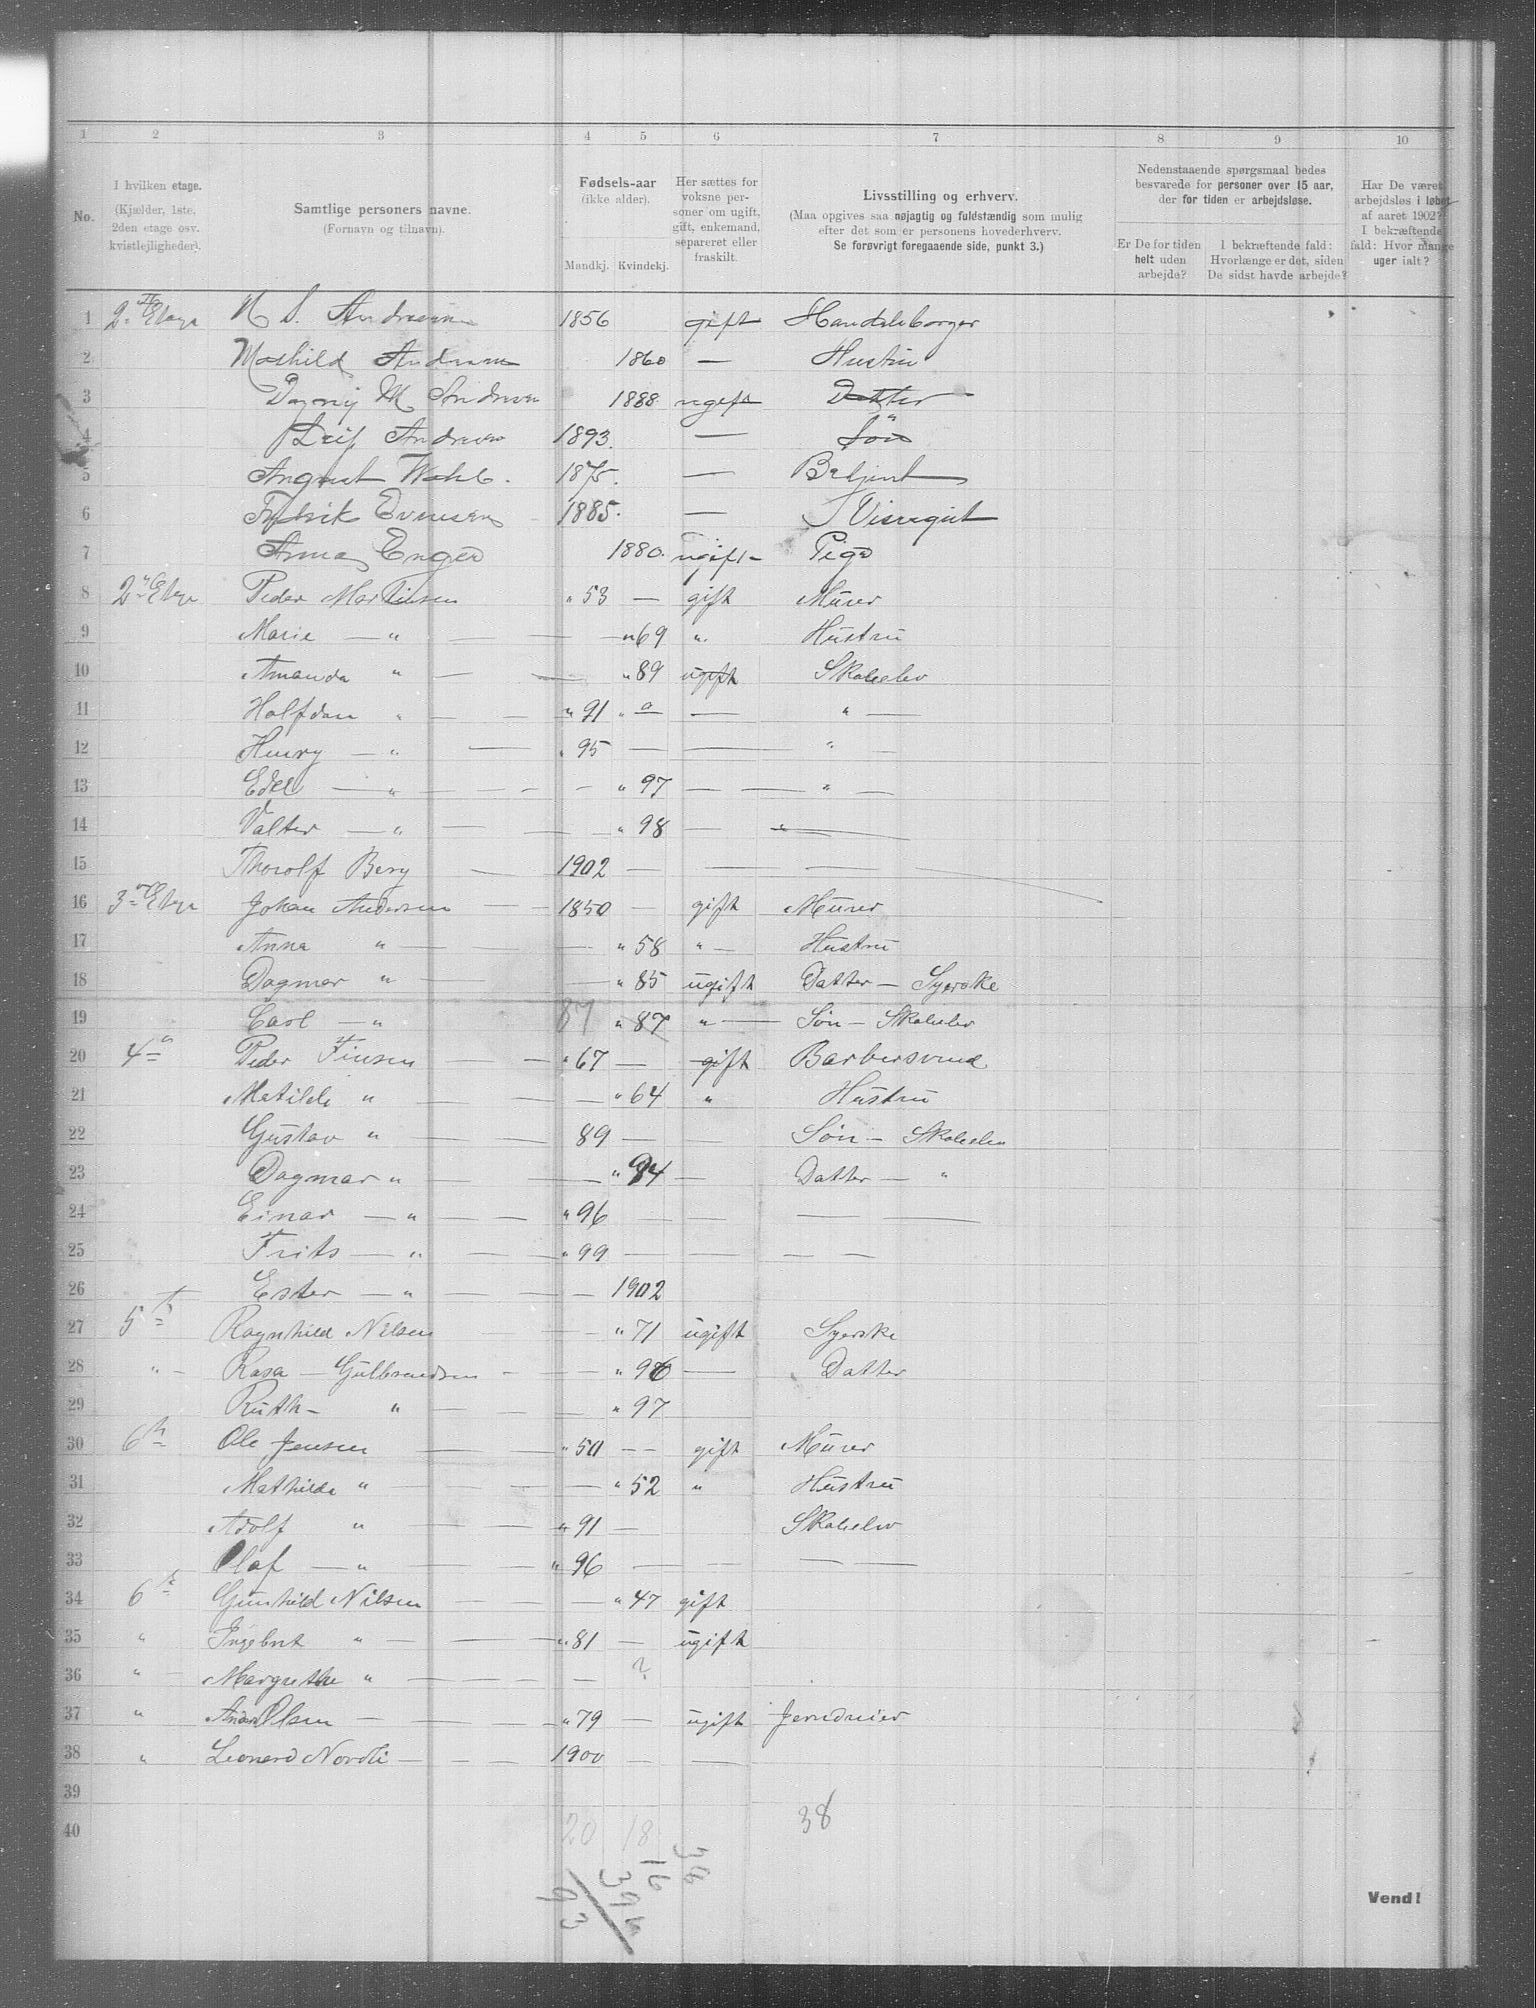 1 2 3 4 5 6 7 8 9 10
No.
I hvilken etage.
(Kjælder, 1ste,
2den etage osv.
kvistleiligheder).
Samtlige personers navne.
(Fornavn og tilnavn).
Fødsels-aar
(ikke alder).
Mandkj. Kvindekj.
Her sættes for
voksne per-
soner om ugift,
gift, enkemand,
separeret eller
fraskilt.
Livsstilling og erhverv.
(Maa opgives saa nøjagtig og fuldstændig som mulig
efter det som er personens hovederhverv.
Se forøvrigt foregaaende side, punkt 3.)
Nedenstaaende spørgsmaal bedes
besvarede for personer over 15 aar,
der for tiden er arbejdsløse.
Er De for tiden
helt uden
arbejde?
I bekræftende fald:
Hvorlænge er det, siden
De sidst havde arbejde?
Har De været
arbejdsløs i løbet
af aaret 1902?
I bekræftende
fald: Hvor mange
uger ialt?
1 2 Etage N S. Andresen 1856 gift Handelsborger
2 Mathild Andresen 1860 — Hustru
3 Dagny M Andresen 1888 ugift Datter
4 Leif Andresen 1893. — Søn
5 August Wahl. 1875. — Betjent
6 Fredrik Evensen 1885. — Visergut
7 Anna Enger 1880. ugift Pige
8 2 Etage Peder Martinsen " 53 — gift Murer
9 Marie — " — — " 69 " Hustru
10 Amanda " — — " 89 ugift Skoleelev
11 Halfdan " — — " 91 " " — — " —
12 Henry — " — " 95 — — " —
13 Edel — " — — " 97 — — " —
14 Valter — " — — " 98 — " —
15 Thorolf Berg — 1902 — — —
16 3 Etage Johan Andersen — 1850 — gift Murer
17 Anna " — — " 58 " — Hustru
18 Dagmar " — — " 85 ugift Datter — Syerske
19 Carl — " 87 " 87 " — Søn — Skoleelev
20 4 " Peder Finsen — — " 67 — gift Barbersvend
21 Matilde " — — " 64 " Hustru
22 Gustav " — 89 — Søn — Skoleelev
23 Dagmar " — — " 94 — Datter — "
24 Einar — " — — " 96 — — — —
25 Frits — " — — " 99 — — — —
26 Ester — " — — — 1902
27 5 Ragnhild Nilsen — " 71 ugift Syerske
28 " - Rosa — Gulbrandsen - — " 96 — Datter
29 Ruth - " — — " 97
30 6 Ole Jensen — — " 50 — gift Murer
31 Mathilda " — — — " 52 " Hustru
32 Adolf " — — " 91 — Skoleelev
33 Olaf — " — — " 96 — — — —
34 6 Gunhild Nilsen — — — " 47 gift
35 " Ingebret " — — " 81 — ugift
36 " — Margrethe " — — — — ?
37 " Anders Olsen — — — " 79 — ugift Jerndreier
38 " Leonard Nordli — — — 1900 — —
39
40
20 18
38
38
16
39
93
Vend!